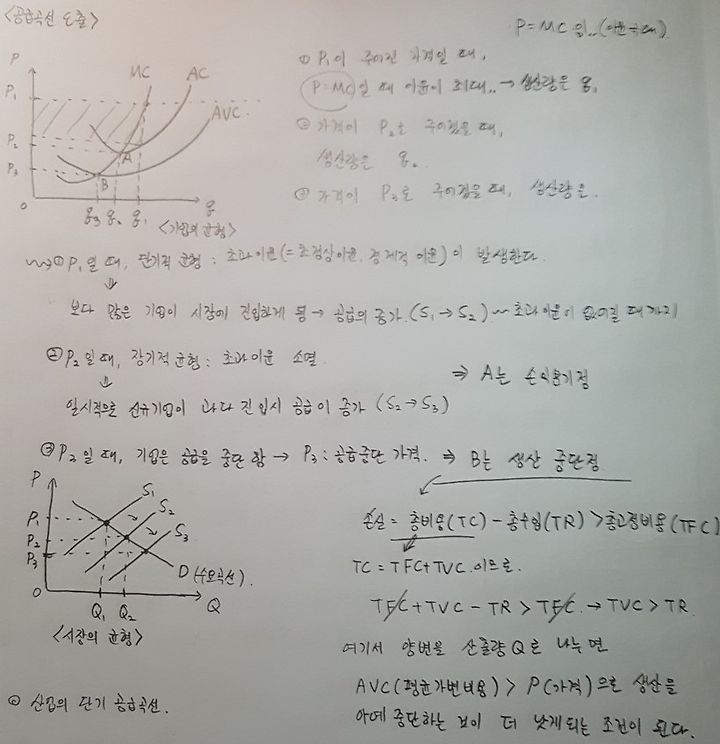 <공급곡선 도출>
P = MC 일.. (이윤극대)
P
MC
AC
AVC
P₁
P₂
P₃
A
B
0
q₃ q₂ q₁
q
<기업의 균형>
① P₁이 주어진 가격일 때,
P=MC일 때 이윤이 최대.. → 생산량은 q₁
② 가격이 P₂로 주어졌을 때,
생산량은 q₂
③ 가격이 P₃로 주어졌을 때, 생산량은.
① P₁일 때, 단기적 균형 : 초과이윤(=초정상이윤, 경제적 이윤)이 발생한다.
⇓
보다 많은 기업이 시장에 진입하게 됨 → 공급의 증가 (S₁→S₂) ~ 초과이윤이 없어질 때까지
② P₂일 때, 장기적 균형 : 초과이윤 소멸
⇒ A는 손익분기점
⇓
일시적으로 신규기업이 과다 진입시 공급이 증가 (S₂→S₃)
③ P₃일 때, 기업은 공급을 중단함 → P₃ : 공급중단 가격. ⇒ B는 생산 중단점
P
S₁
S₂
S₃
P₁
P₂
P₃
D (수요곡선).
0
Q₁ Q₂
Q
<시장의 균형>
손실 = 총비용(TC) - 총수입(TR) > 총고정비용(TFC)
TC = TFC + TVC 이므로.
TFC + TVC - TR > TFC. → TVC > TR.
여기서 양변을 산출량 Q로 나누면
AVC(평균가변비용) > P(가격)으로 생산을
아예 중단하는 것이 더 낫게되는 조건이 된다.
◎ 산업의 단기 공급곡선.